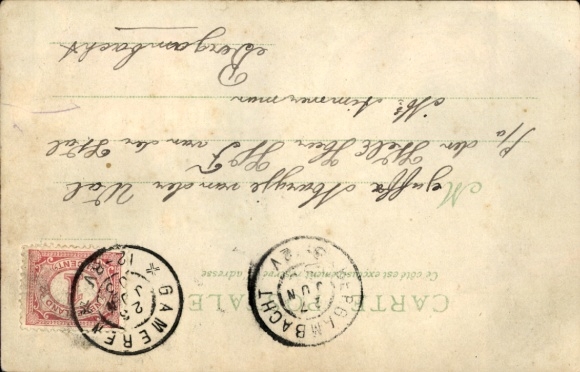 CARTE POSTALE
Ce côté est exclusivement réservé à adresse
Mejuffr Marygje van der Wal
p/a den Wel Ed Heer H. J. van der Wal
Mr timmerman
Bergambacht
GAMEREN
BERGAMBACHT
JUN
CENT